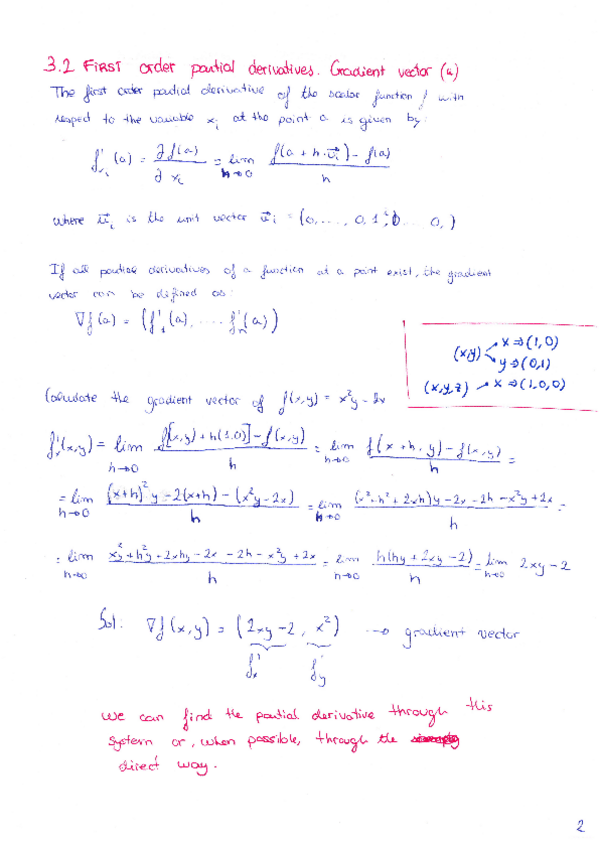 3.2 FIRST order partial derivatives. Gradient vector (a)
The first order partial derivative of the scalar function f with
respect to the variable xᵢ at the point a is given by:
f'ₓᵢ (a) = ∂f(a)/∂xᵢ = lim h→0 (f(a + h·u⃗ᵢ) - f(a))/h
where u⃗ᵢ is the unit vector u⃗ᵢ = (0, ..., 0, 1, 0 ... 0, )
If all partial derivatives of a function at a point exist, the gradient
vector can be defined as:
∇f(a) = (f'₁(a), .... f'ₙ(a))
(x,y) x ⇒ (1,0)
y ⇒ (0,1)
(x,y,z) → x ⇒ (1,0,0)
Calculate the gradient vector of f(x,y) = x²y - 2x
f'ₓ(x,y) = lim h→0 (f[(x,y) + h(1,0)] - f(x,y))/h = lim h→0 (f(x + h, y) - f(x,y))/h =
= lim h→0 ((x+h)²y - 2(x+h) - (x²y - 2x))/h = lim h→0 ((x²+h²+2xh)y - 2x - 2h - x²y + 2x)/h =
= lim h→0 (x²y + h²y + 2xhy - 2x - 2h - x²y + 2x)/h = lim h→0 (h(hy + 2xy - 2))/h = lim h→0 2xy - 2
Sol: ∇f(x,y) = (2xy - 2, x²) → gradient vector
f'ₓ f'ᵧ
We can find the partial derivative through this
system or, when possible, through the
direct way.
2